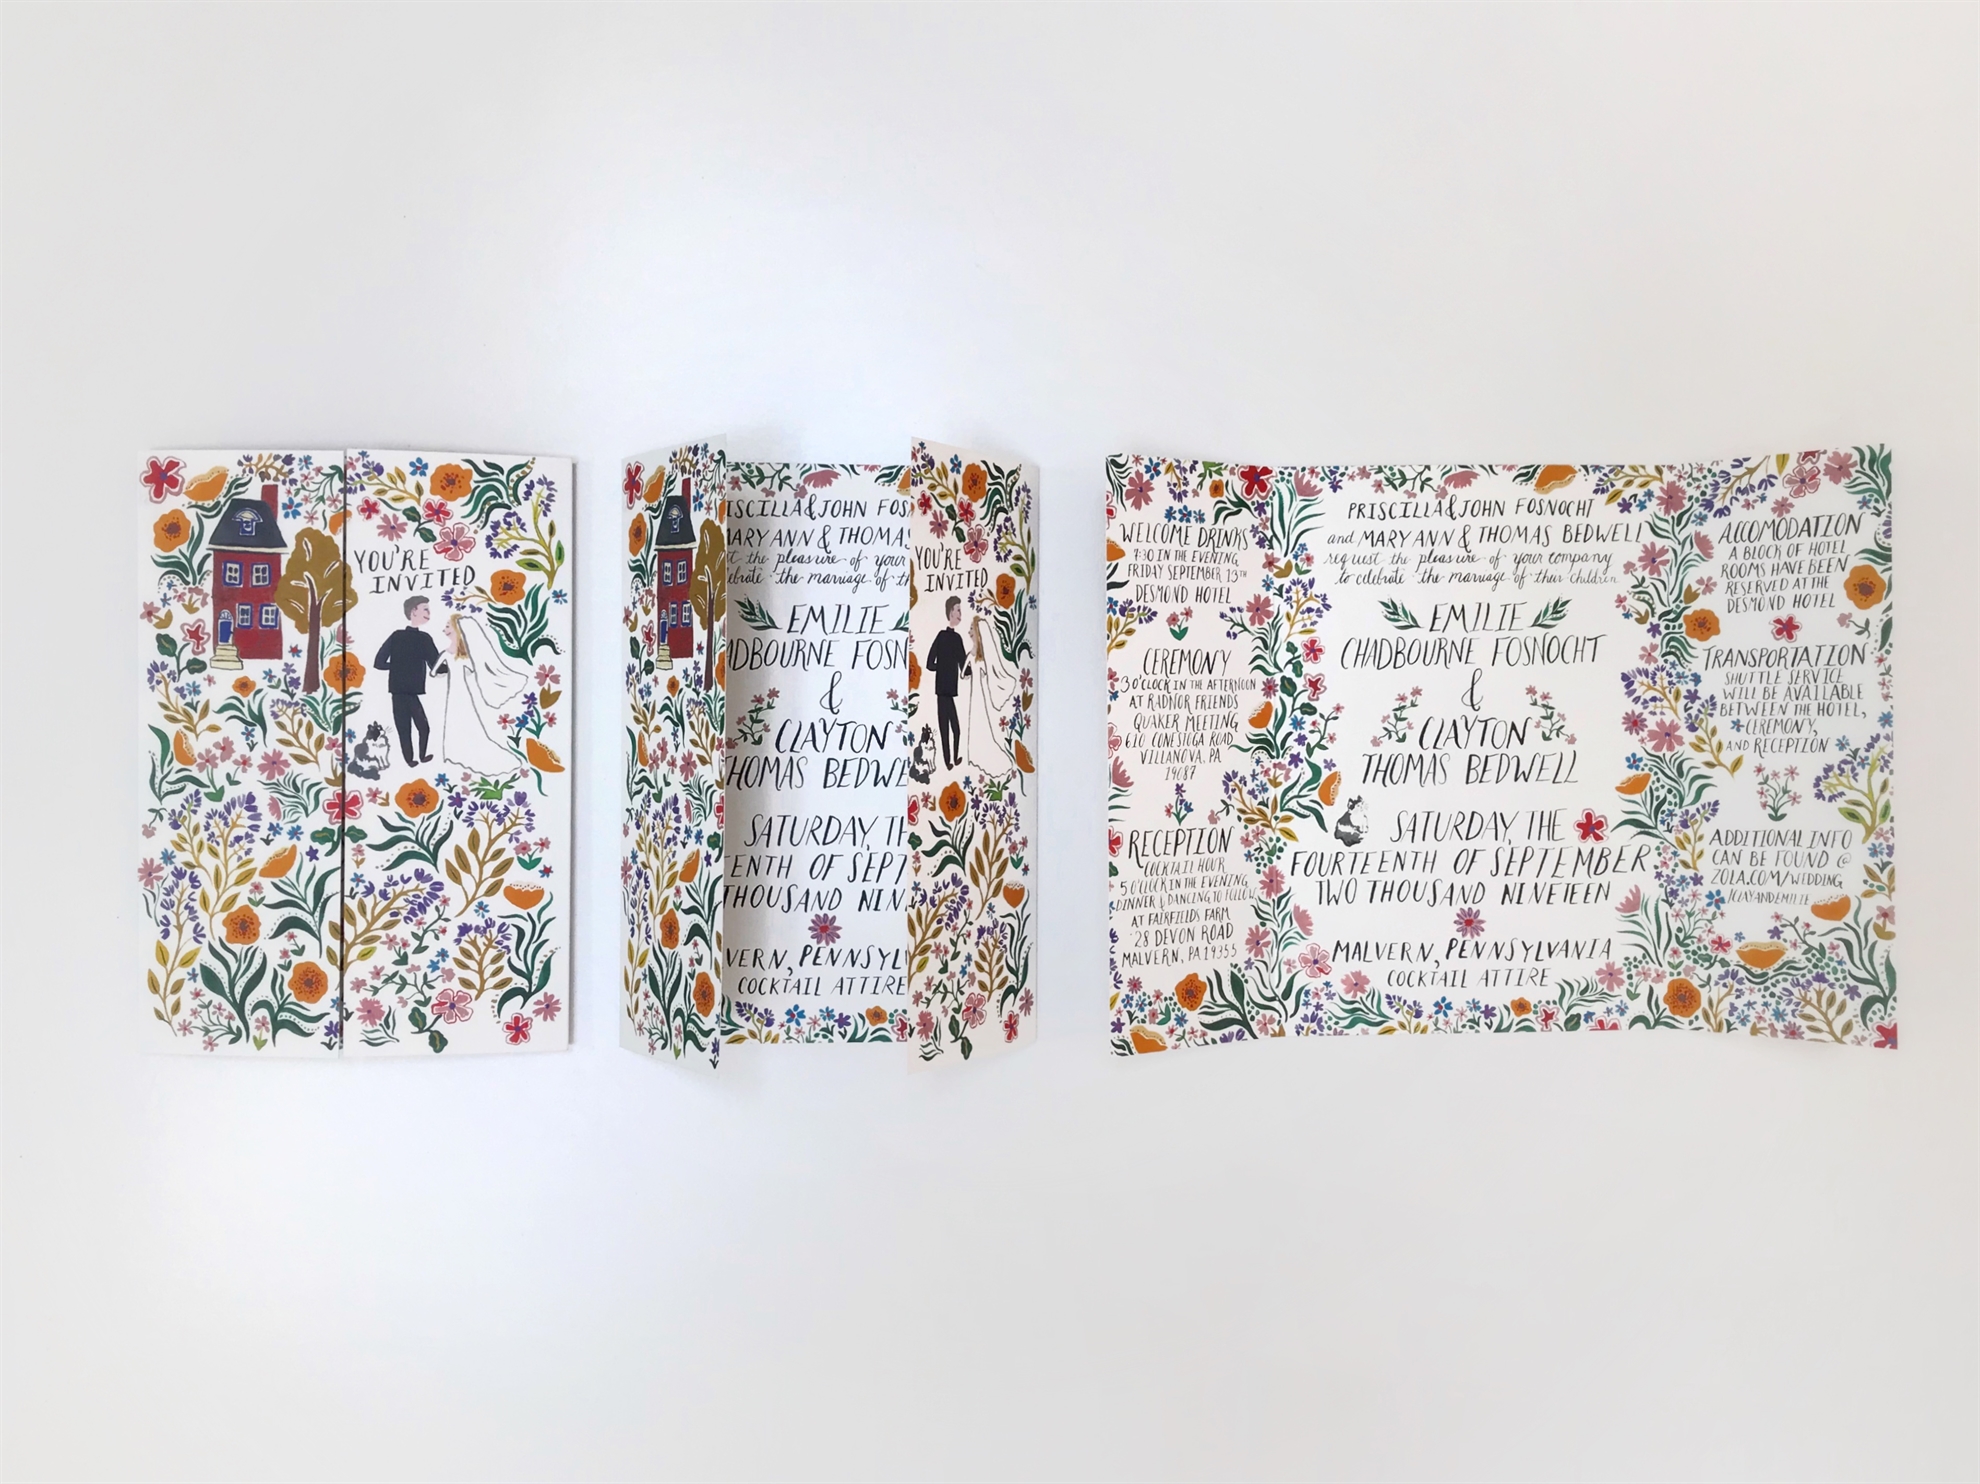 YOU'RE
INVITED
ISCILLA & JOHN FOS
MARY ANN & THOMAS
the pleasure of your
the marriage of th
EMILIE
DBOURNE FOSN
&
CLAYTON
HOMAS BEDWE
SATURDAY, TH
TEENTH OF SEPT
THOUSAND NIN
VERN, PENNSYL
COCKTAIL ATTIRE
YOU'RE
INVITED
WELCOME DRINKS
7:30 IN THE EVENING
FRIDAY SEPTEMBER 13TH
DESMOND HOTEL
CEREMONY
3 O'CLOCK IN THE AFTERNOON
AT RADNOR FRIENDS
QUAKER MEETING
610 CONESTOGA ROAD
VILLANOVA, PA
19087
RECEPTION
COCKTAIL HOUR
5 O'CLOCK IN THE EVENING
DINNER & DANCING TO FOLLOW
AT FAIRFIELDS FARM
28 DEVON ROAD
MALVERN, PA 19355
PRISCILLA & JOHN FOSNOCHT
and MARY ANN & THOMAS BEDWELL
request the pleasure of your company
to celebrate the marriage of their children
EMILIE
CHADBOURNE FOSNOCHT
&
CLAYTON
THOMAS BEDWELL
SATURDAY, THE
FOURTEENTH OF SEPTEMBER
TWO THOUSAND NINETEEN
MALVERN, PENNSYLVANIA
COCKTAIL ATTIRE
ACCOMODATION
A BLOCK OF HOTEL
ROOMS HAVE BEEN
RESERVED AT THE
DESMOND HOTEL
TRANSPORTATION
SHUTTLE SERVICE
WILL BE AVAILABLE
BETWEEN THE HOTEL,
CEREMONY,
AND RECEPTION
ADDITIONAL INFO
CAN BE FOUND @
ZOLA.COM/WEDDING
/CLAYANDEMILIE